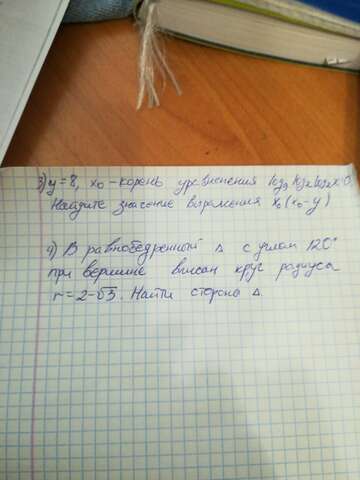 3) y = 8, x₀ - корень уравнения log₃ log₂ log₂ x = 0
Найдите значение выражения x₀(x₀-y)
4) В равнобедренный Δ с углом 120°
при вершине вписан круг радиуса
r = 2-√3. Найти сторона Δ.